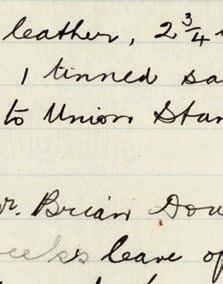 leather, 2 3/4
1 tinned sa
to Union Stan
r. Brian Dow
eeks leave of